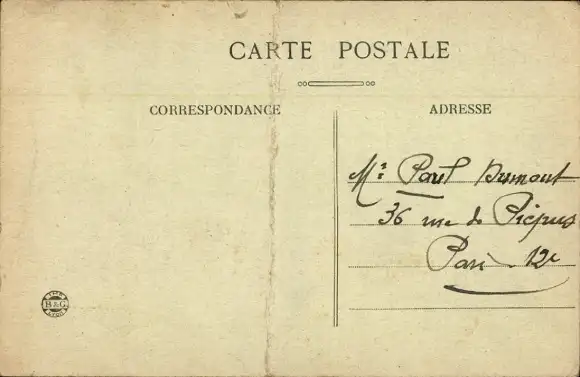 CARTE POSTALE
CORRESPONDANCE
ADRESSE
Mr Paul Dumont
36 rue de Picpus
Paris 12e
B&G